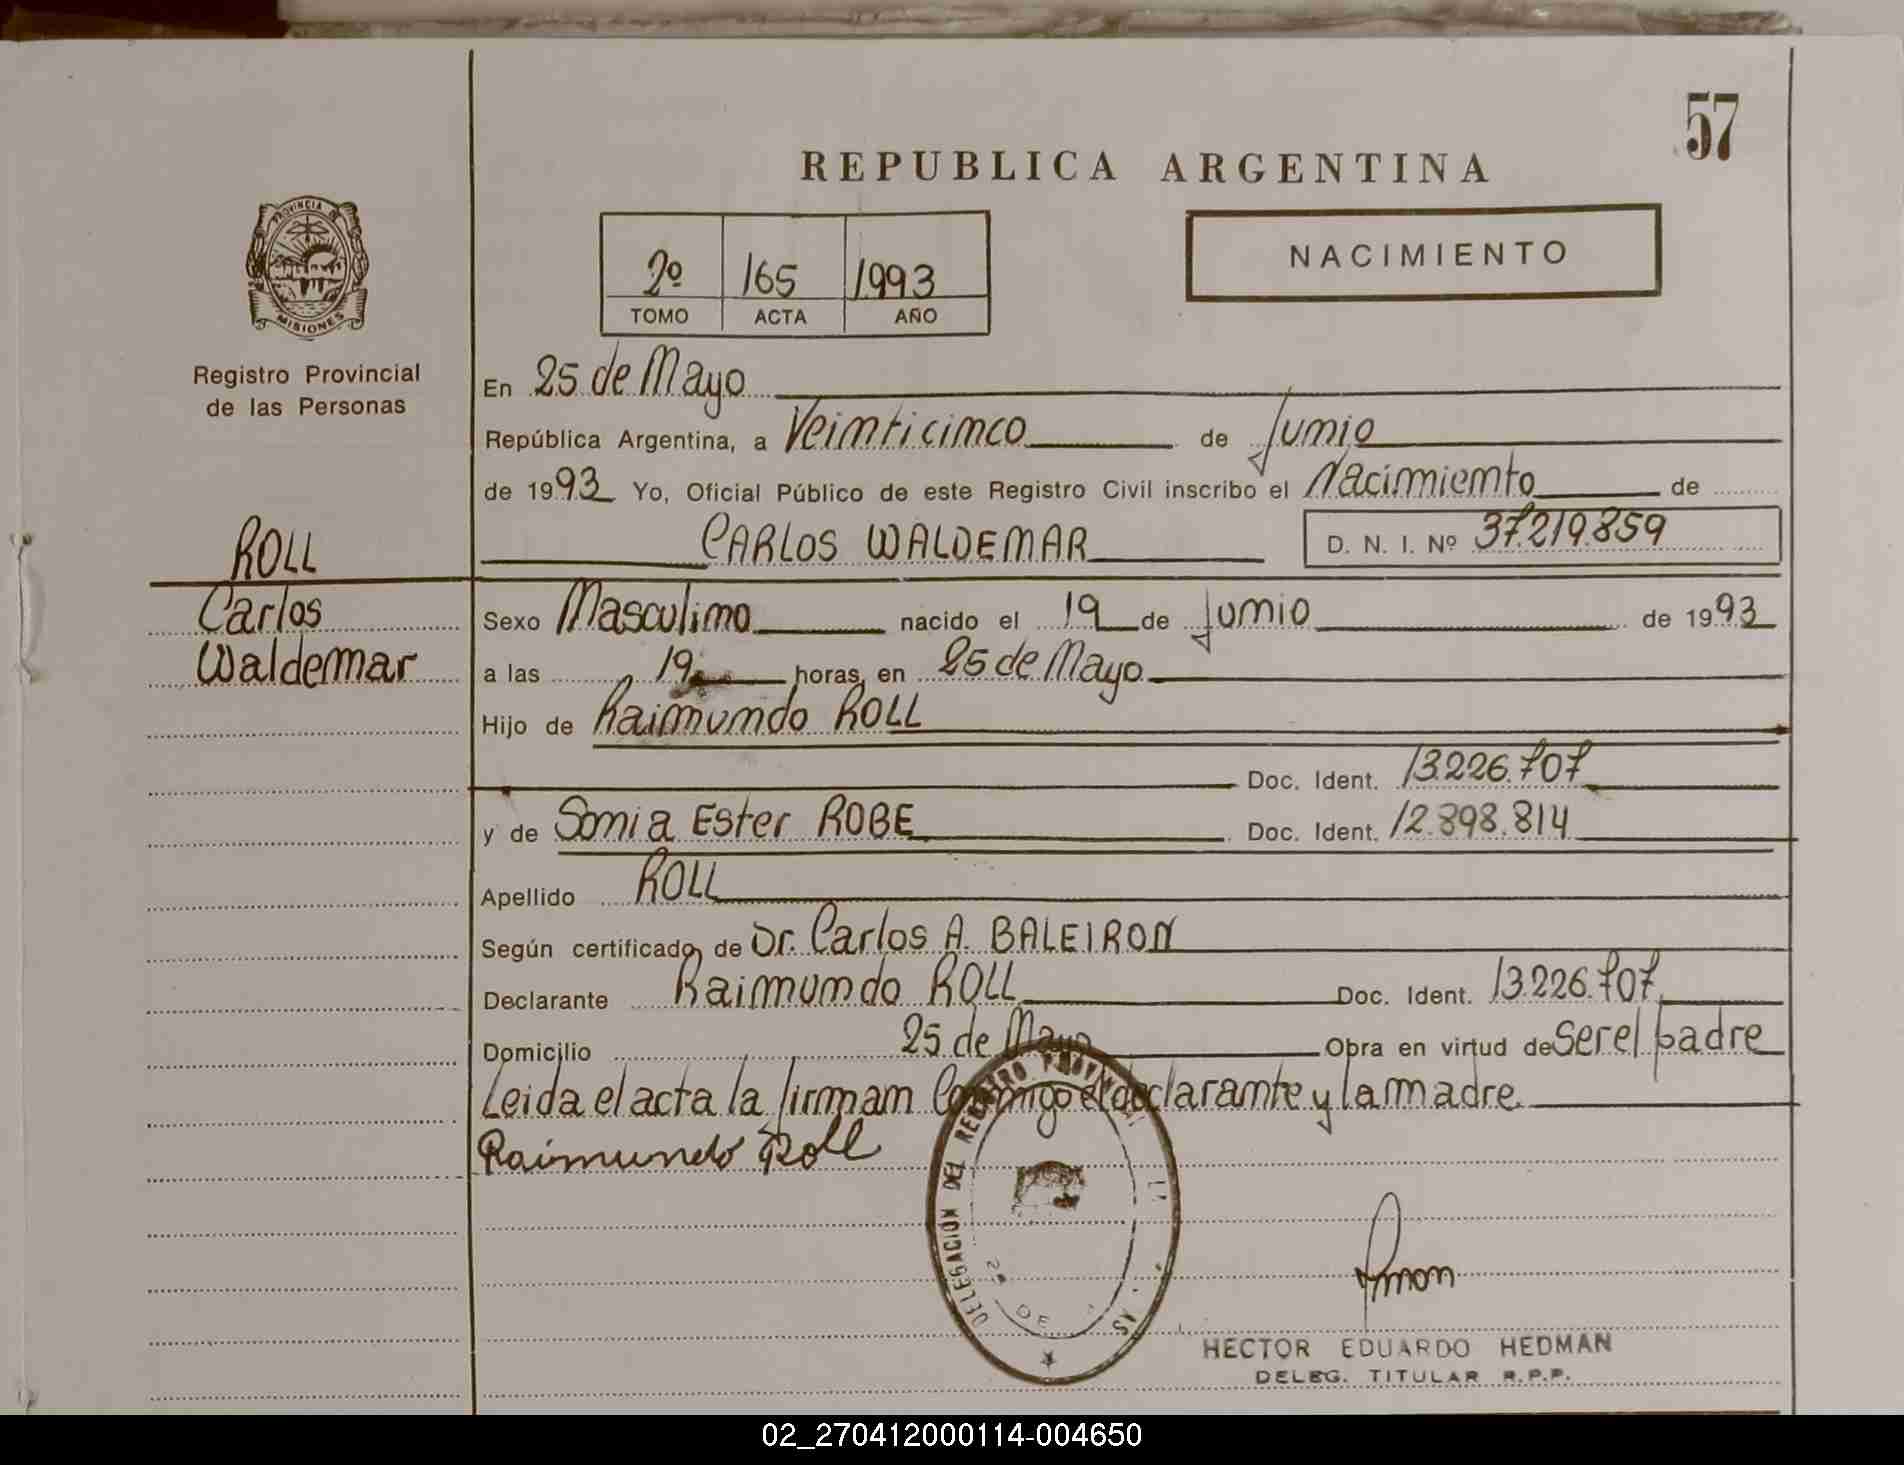 57
REPUBLICA ARGENTINA
PROVINCIA DE
MISIONES
2º 165 1993
TOMO ACTA AÑO
NACIMIENTO
Registro Provincial
de las Personas
En 25 de Mayo
República Argentina, a Veinticinco de Junio
de 1993 Yo, Oficial Público de este Registro Civil inscribo el Nacimiento de
ROLL
CARLOS WALDEMAR D. N. I. Nº 37.219.859
Carlos
Waldemar
Sexo Masculino nacido el 19 de Junio de 1993
a las 19 horas, en 25 de Mayo
Hijo de Raimundo ROLL
Doc. Ident. 13.226.707
y de Sonia Ester ROBE Doc. Ident. 12.898.814
Apellido ROLL
Según certificado de Dr. Carlos A. BALEIRON
Declarante Raimundo ROLL Doc. Ident. 13.226.707
Domicilio 25 de Mayo Obra en virtud de Ser el padre
Leida el acta la firman Conmigo el declarante y la madre
Raimundo Roll
DELEGACIÓN DEL REGISTRO PROVINCIAL
DE
HECTOR EDUARDO HEDMAN
DELEG. TITULAR R.P.P.
02_270412000114-004650